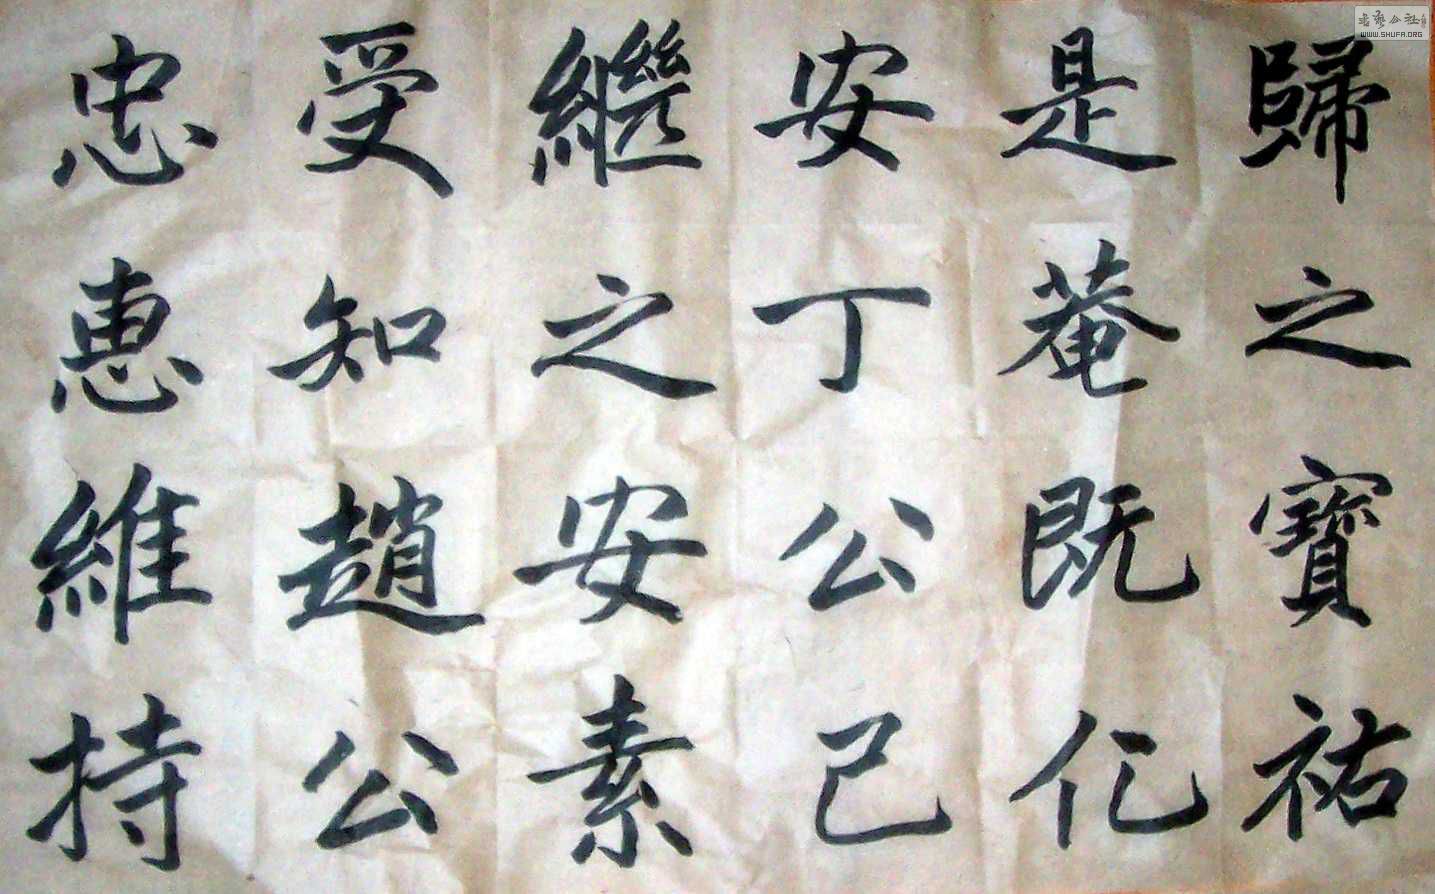 歸之寶祐
是菴既化
安丁公已
繼之安素
受知趙公
忠惠維持
書藝公社
WWW.SHUFA.ORG